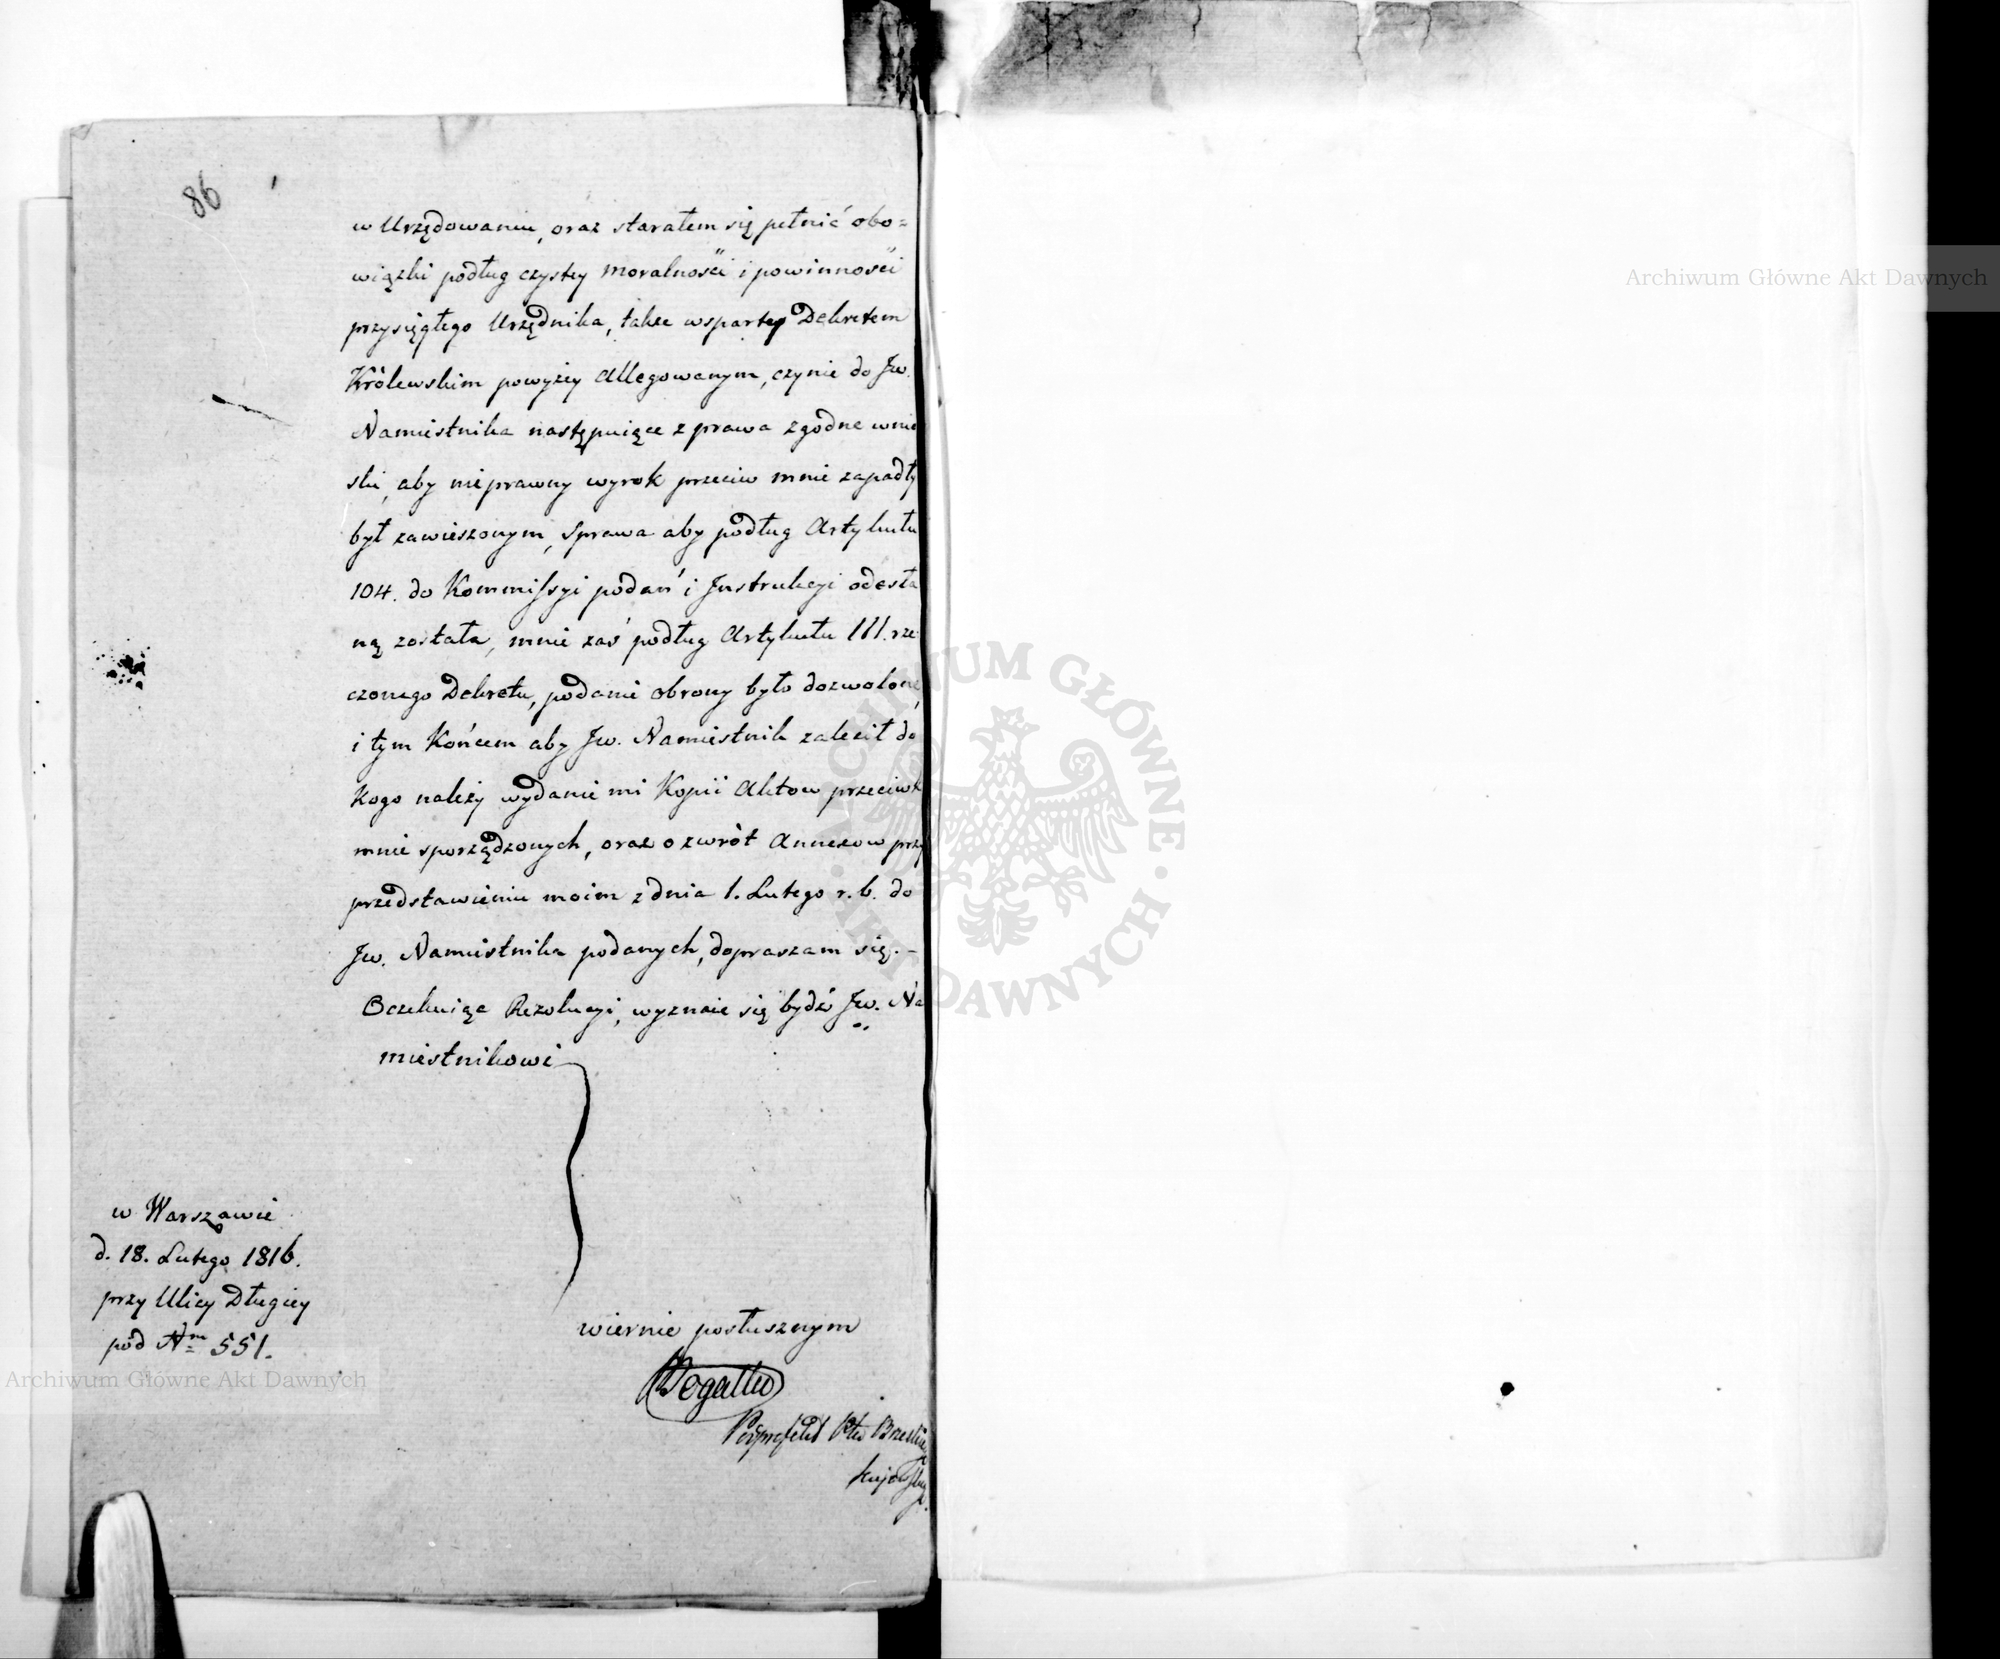 86
w Urzędowaniu, oraz starałem się pełnić obo=
wiązki podług czystey moralności i powinności
przysięgłego Urzędnika, także wsparty Dekretem
Królewskim powyżey allegowanym, czynię do Jw.
Namiestnika następuiące z prawa zgodne wnio
ski, aby nieprawny wyrok przeciw mnie zapadły
był zawieszonym, sprawa aby podług Artykułu
104. do Kommissyi podań i Instrukcyi odesła
ną została, mnie zaś podług Artykułu 111. rze
czonego Dekretu, podanie obrony było dozwolone,
i tym Końcem aby Jw. Namiestnik zalecił do
kogo należy wydanie mi Kopii Aktow przeciwk
mnie sporządzonych, oraz o zwrót Annexow przy
przedstawieniu moim z dnia 1. Lutego r. b. do
Jw. Namiestnika podanych, dopraszam się.–
Oczekuiąc Rezolucyi, wyznaie się bydź Jw. Na
miestnikowi
w Warszawie
d. 18. Lutego 1816.
przy Ulicy Długiey
pod Nm 551.
wiernie posłusznym
Podprefekt Ptu Brzesko
Kujawskiego.
Archiwum Główne Akt Dawnych
Archiwum Główne Akt Dawnych
ARCHIWUM GŁÓWNE · AKT DAWNYCH ·